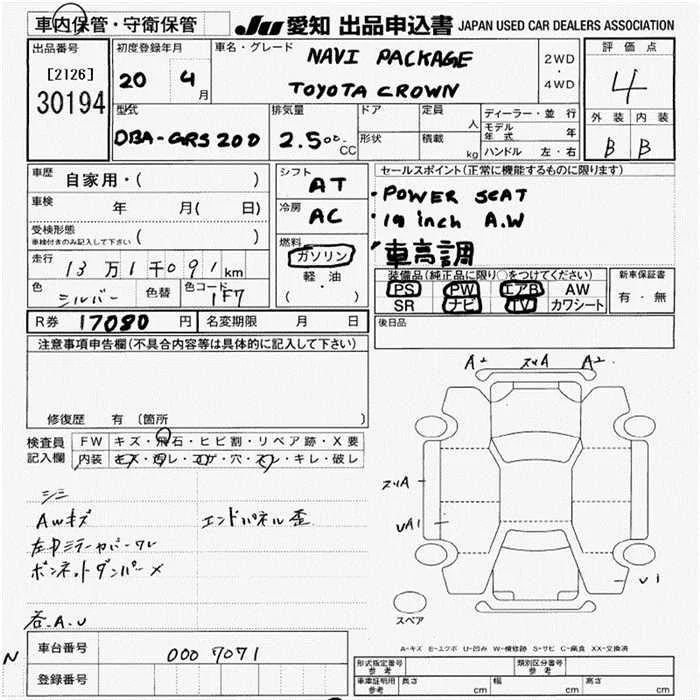 車内保管・守衛保管
JU 愛知 出品申込書 JAPAN USED CAR DEALERS ASSOCIATION
出品番号
[2126]
30194
初度登録年月
20 4月
車名・グレード
NAVI PACKAGE
TOYOTA CROWN
2WD
・
4WD
評価点
4
外装 内装
B B
型式
DBA-GRS200
排気量
2.500 CC
ドア
形状
定員 人
積載 kg
ディーラー・並行
モデル年式 年
ハンドル 左・右
車歴 自家用・( )
車検 年 月( 日)
受検形態
車検付きのみ記入して下さい ( )
走行 13万1千091km
色 シルバー 色替 色コード 1F7
シフト AT
冷房 AC
燃料
ガソリン
軽・油
( )
セールスポイント(正常に機能するものに限ります)
・POWER SEAT
・19 inch A.W
・車高調
装備品(純正品に限り〇をつけてください)
PS PW エアB AW
SR ナビ TV カワシート
新車保証書
有・無
R券 17080円 名変期限 月 日
後日品
注意事項申告欄(不具合内容等は具体的に記入して下さい)
修復歴 有 〔箇所 〕
検査員記入欄
FW キズ・飛石・ヒビ割・リペア跡・X要
内装 キズ・汚レ・コゲ・穴・スレ・キレ・破レ
シミ
AWキズ エンドパネル歪
左ドミラーカバーワレ
ボンネットダンパー×
各A.U
A2 ズリA A2
ズリA
UA1
U1
スペア
A-キズ E-エクボ U-凹み W-補修跡 S-サビ C-腐食 XX-交換済
N
車台番号 000 7071
登録番号
形式指定番号 参考
類別区分番号 参考
車庫証明用 参考 長さ cm 幅 cm 高さ cm